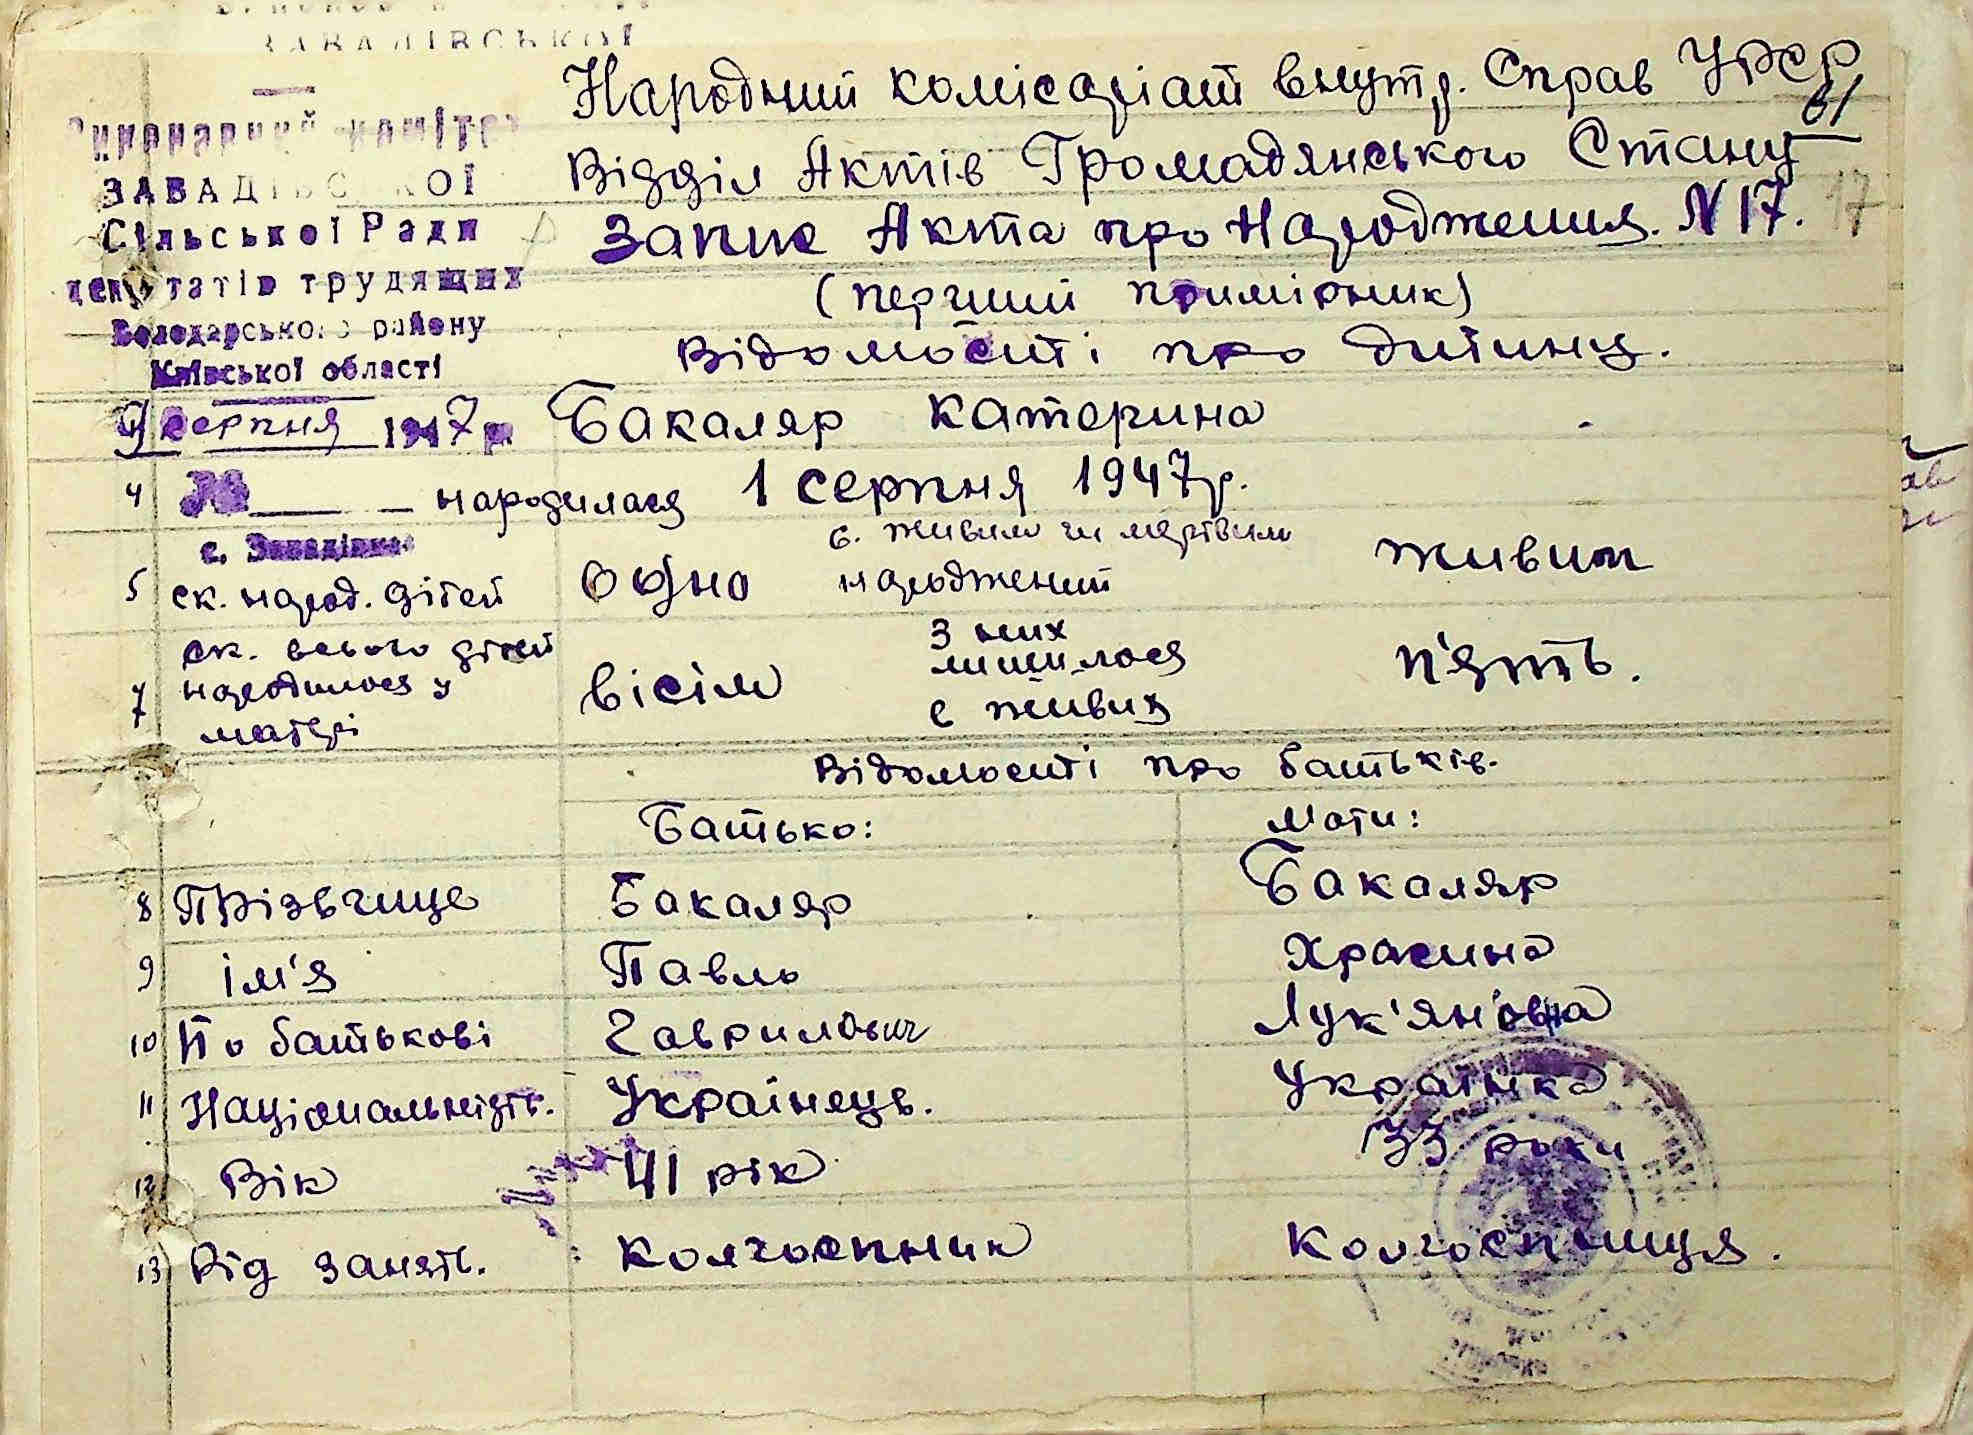 ЗАВАДІВСЬКОЇ
Виконавчий комітет
ЗАВАДІВСЬКОЇ
Сільської Ради
депутатів трудящих
Володарського району
Київської області
9 серпня 1947 р.
с. Завадівка
Народний комісаріат внутр. Справ УРСР
61
Відділ Актів Громадянського Стану
Запис Акта про Народження. N 17. 17
(перший примірник)
Відомості про дитину.
Бакаляр Катерина
4 народилася 1 серпня 1947р.
5 ск. народ. дітей одно 6. живим чи мертвим народжений живим
7 ск. всього дітей народилося у матері вісім з них лишилося є живих п'ять.
Відомості про батьків.
Батько: Мати:
8 Прізвище Бакаляр Бакаляр
9 ім'я Павло Храсина
10 По батькові Гаврилович Лук'янівна
11 Національність. Українець. Українка
12 Вік 41 рік 33 роки
13 Рід занять. колгоспник колгоспниця.